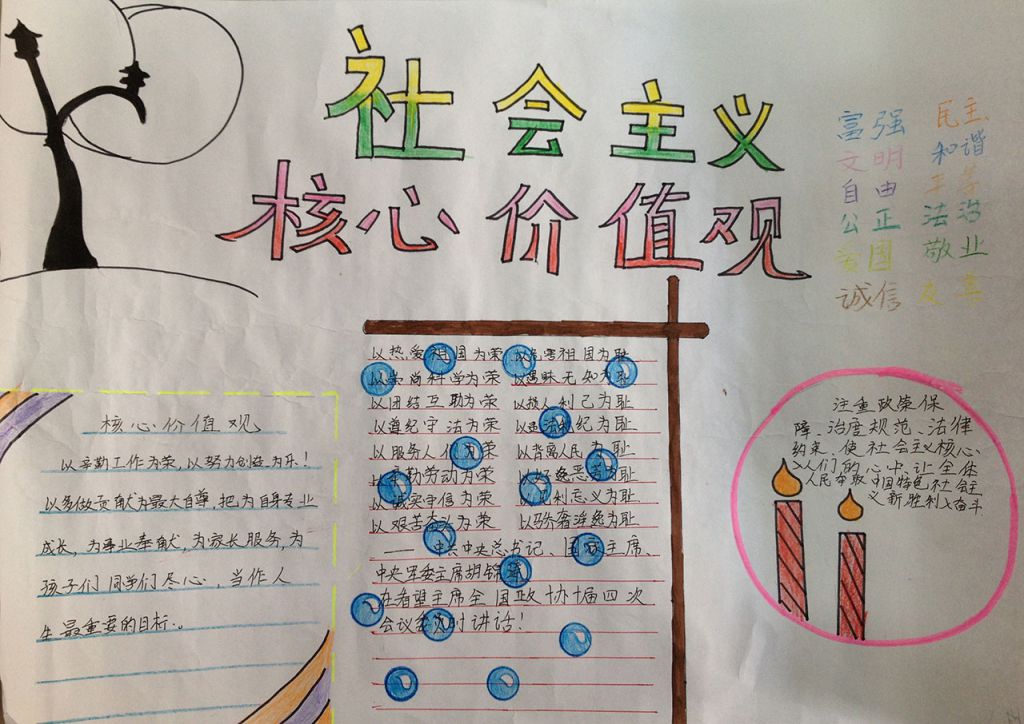 社会主义
核心价值观
富强 民主
文明 和谐
自由 平等
公正 法治
爱国 敬业
诚信 友善
核心价值观
以辛勤工作为荣,以努力创造为乐!
以多做贡献为最大自尊,把为自身专业
成长,为事业奉献,为家长服务,为
孩子们同学们尽心,当作人
生最重要的目标。
以热爱祖国为荣 以危害祖国为耻
以崇尚科学为荣 以愚昧无知为耻
以团结互助为荣 以损人利己为耻
以遵纪守法为荣 以违法乱纪为耻
以服务人民为荣 以背离人民为耻
以辛勤劳动为荣 以好逸恶劳为耻
以诚实守信为荣 以见利忘义为耻
以艰苦奋斗为荣 以骄奢淫逸为耻
——中共中央总书记、国家主席、
中央军委主席胡锦涛
在看望主席全国政协十届四次
会议委员时讲话!
注重政策保
障、治度规范、法律
约束、使社会主义核心
入人们的心中,让全体
人民奉献中国特色社会主
义新胜利入奋斗